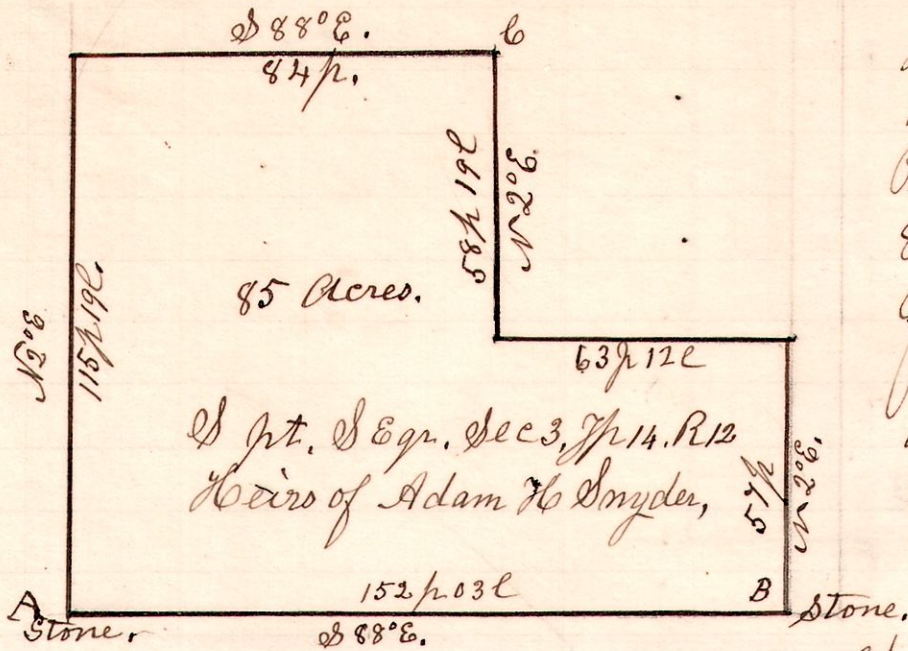 S 88° E. C
84 p.
58 p 19 l
N 2° E.
85 Acres.
N 2° E
115 p 19 l.
63 p 12 l
S pt. S E qr. Sec 3, Tp 14. R 12
Heirs of Adam H Snyder,
57 p
N 2° E.
152 p. 03 l
A B
Stone. Stone.
S 88° E.